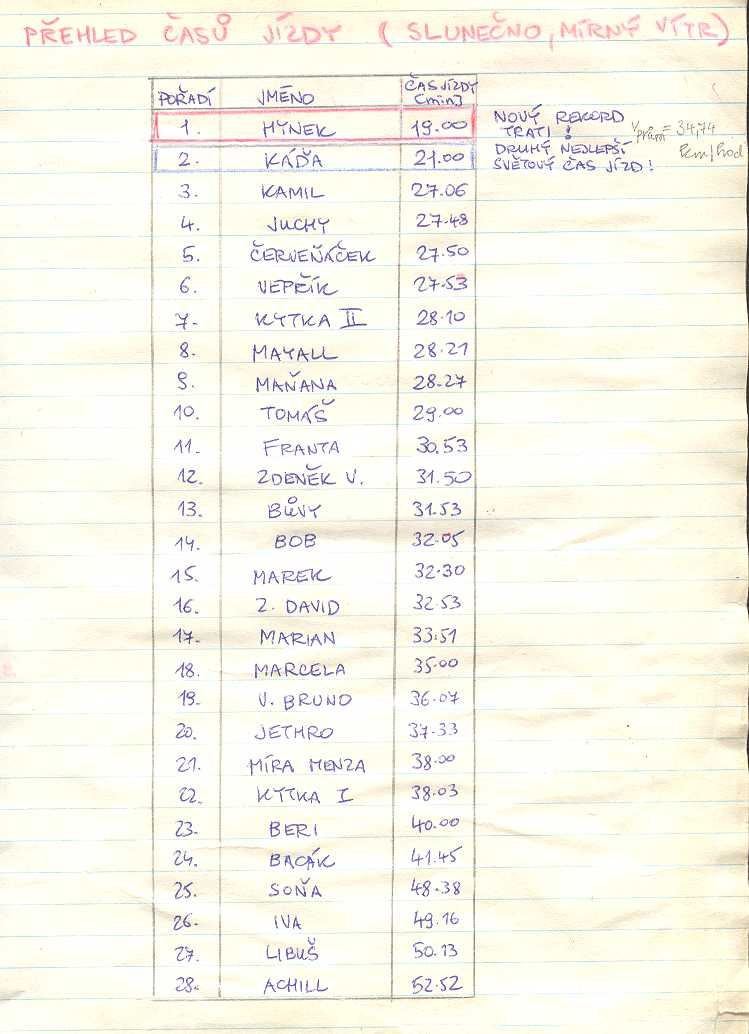 PŘEHLED ČASŮ JÍZDY (SLUNEČNO, MÍRNÝ VÍTR)
POŘADÍ JMÉNO ČAS JÍZDY [min]
1. HYNEK 19.00 NOVÝ REKORD TRATI! vprům = 34,74 km/hod
2. KÁĎA 21.00 DRUHÝ NEJLEPŠÍ SVĚTOVÝ ČAS JÍZD!
3. KAMIL 27.06
4. JUCHY 27.48
5. ČERVEŇÁČEK 27.50
6. VEPŘÍK 27.53
7. KYTKA II 28.10
8. MAYALL 28.21
9. MAŇANA 28.27
10. TOMÁŠ 29.00
11. FRANTA 30.53
12. ZDENĚK V. 31.50
13. BŮVY 31.53
14. BOB 32.05
15. MAREK 32.30
16. Z. DAVID 32.53
17. MARIAN 33.51
18. MARCELA 35.00
19. V. BRUNO 36.07
20. JETHRO 37.33
21. MÍRA MENZA 38.00
22. KYTKA I 38.03
23. BERI 40.00
24. BACÁK 41.45
25. SOŇA 48.38
26. IVA 49.16
27. LIBUŠ 50.13
28. ACHILL 52.52